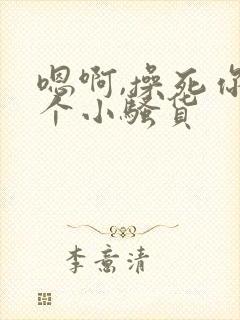 嗯啊,操死你
个小骚货
李意清